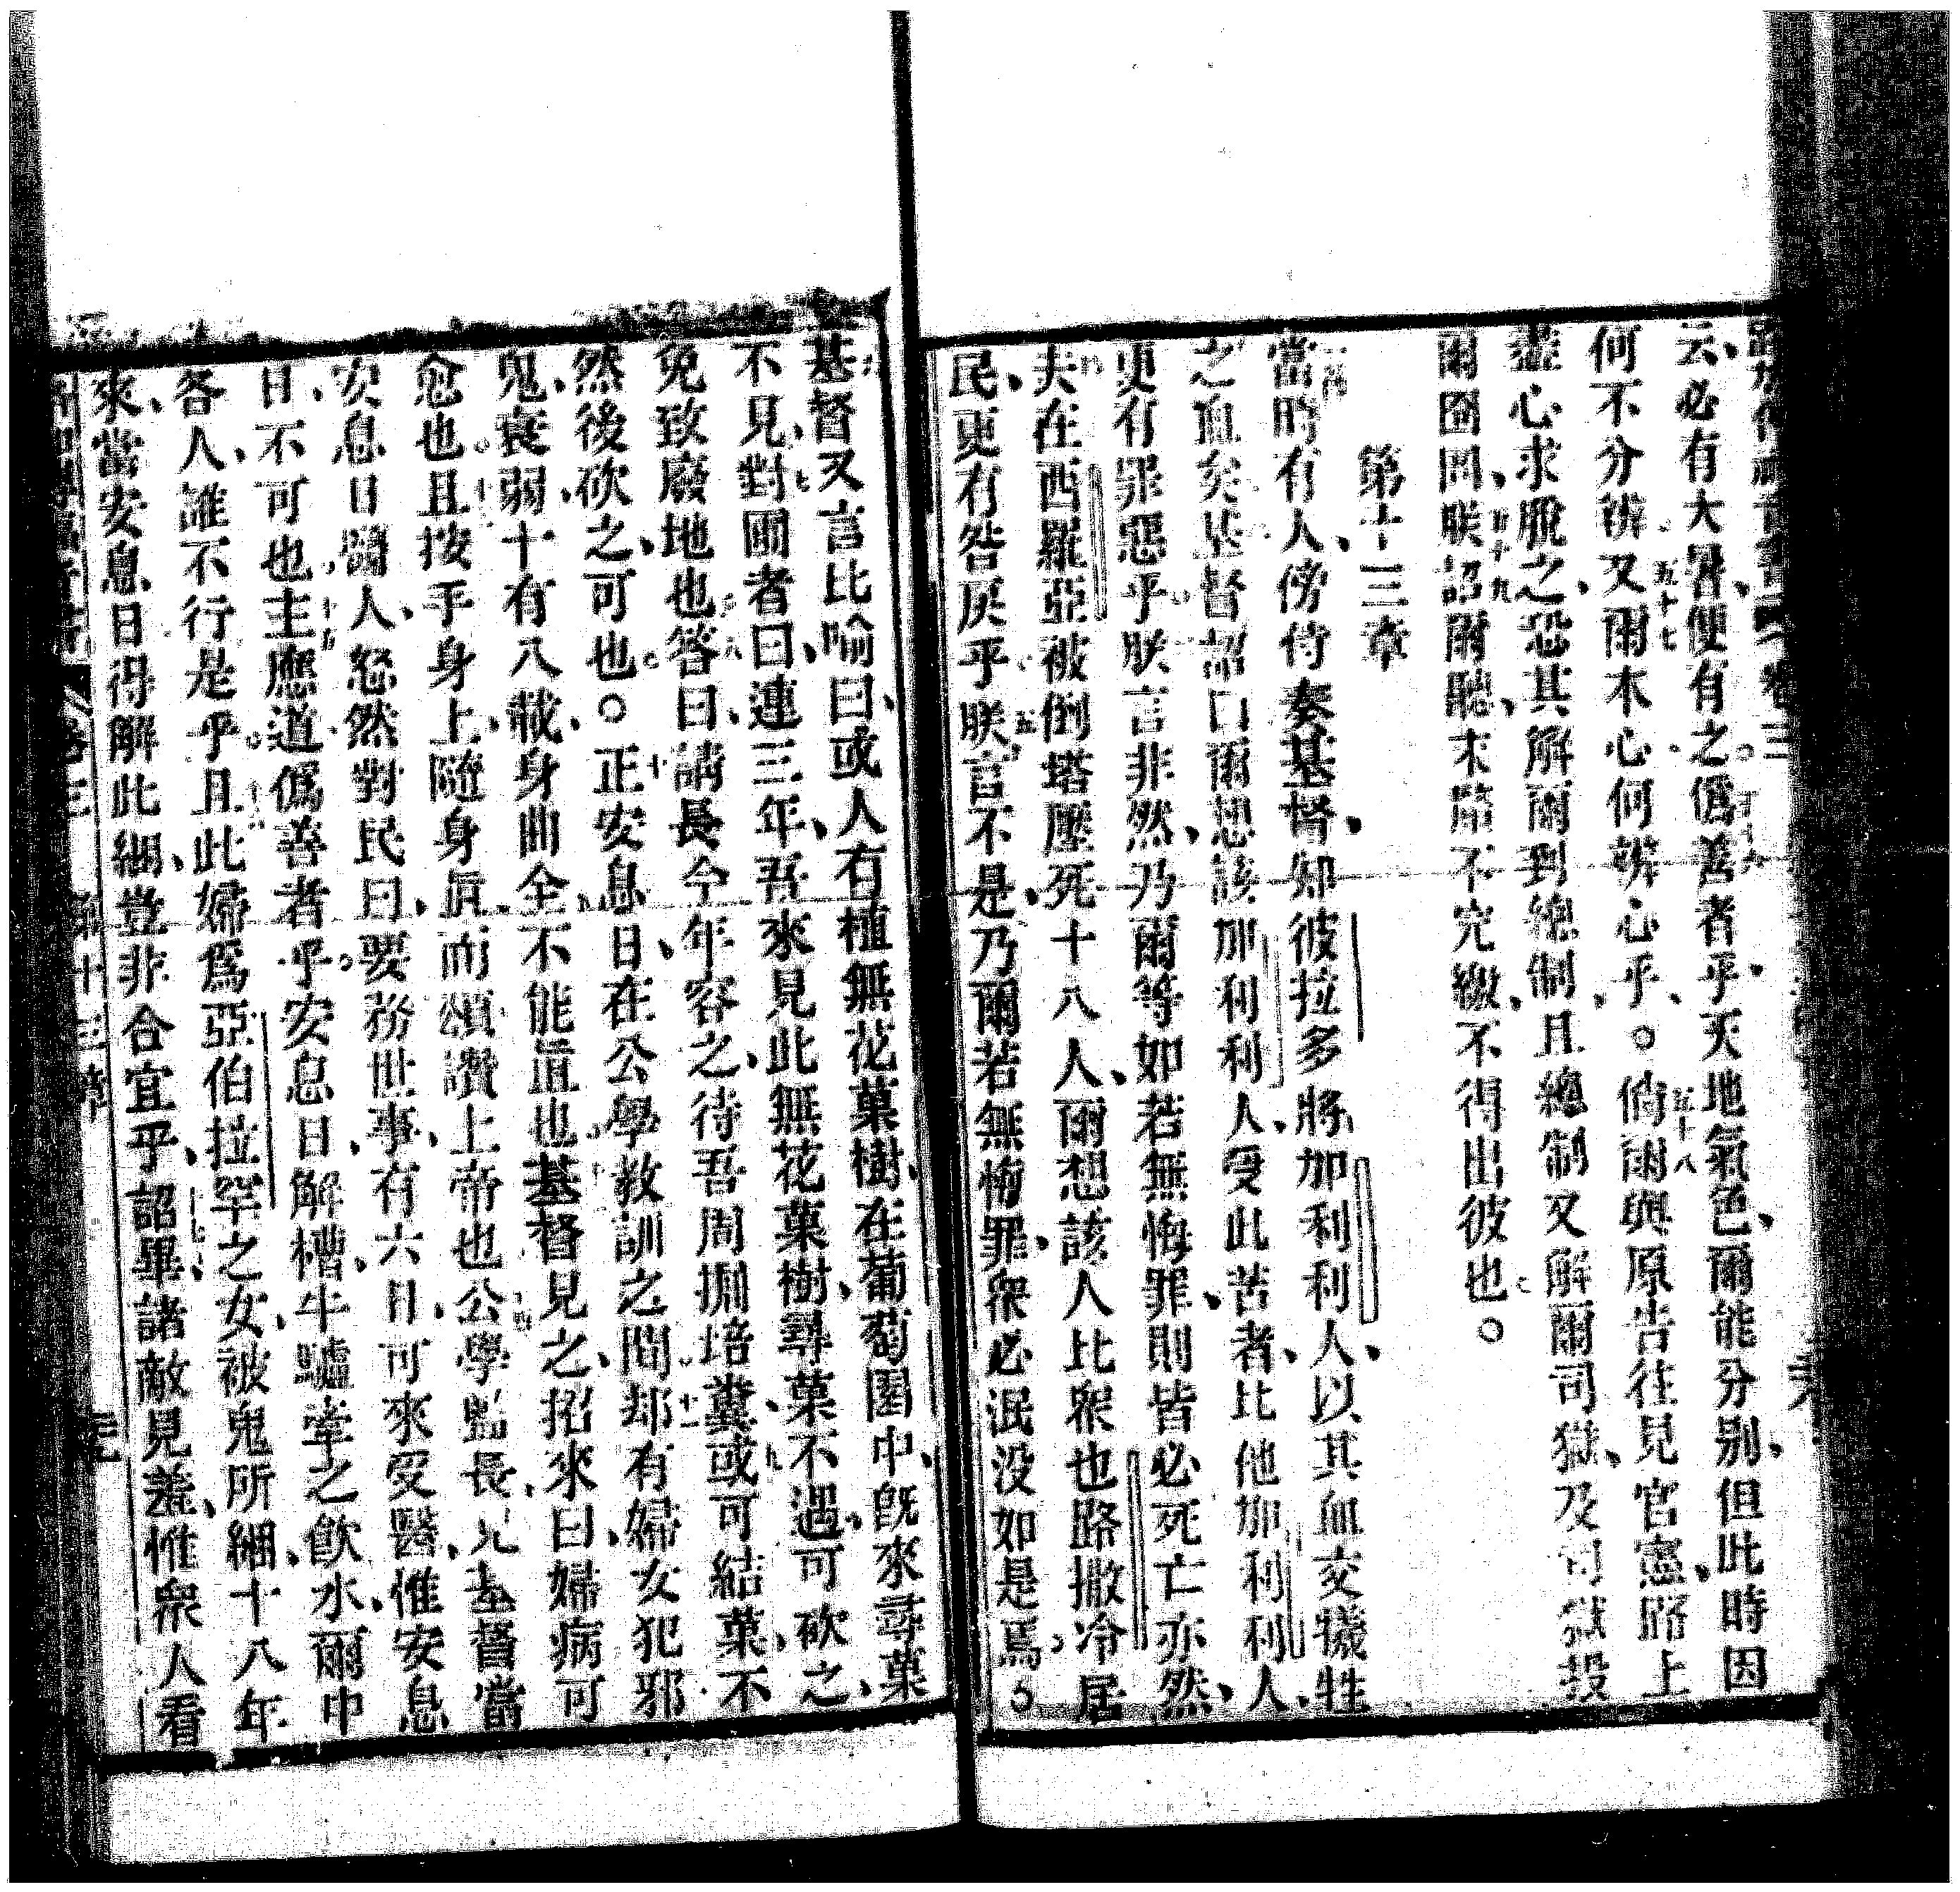 云、必有大暑、便有之。僞善者乎、天地氣色、爾能分別、但此時因
何不分辨、又爾本心何辨心乎。○倘爾與原告往見官憲、路上
盡心求脫之、恐其解爾到總制、且總制又解爾司獄、及司獄投
爾囹圄、朕詔爾聽、末釐不完繳、不得出彼也。○
第十三章
當時有人、傍侍奏基督、知彼拉多將加利利人、以其血交犧牲
之血矣、基督詔曰爾想該加利利人、受此苦者、比他加利利人、
更有罪惡乎、朕言非然、乃爾等如若無悔罪、則皆必死亡亦然、
夫在西羅亞被倒塔壓死十八人、爾想該人比衆也路撒冷居
民、更有咎戾乎、朕言不是、乃爾若無悔罪、衆必泯没如是焉。○
基督又言比喻曰、或人有植無花菓樹、在葡萄園中、旣來尋菓
不見、對圃者曰、連三年、吾來見此無花菓樹、尋菓不遇、可砍之、
免致廢地也、答曰、請長今年容之、待吾周掘培糞、或可結菓、不
然後砍之、可也。○正安息日、在公學教訓之間、却有婦女犯邪
鬼、衰弱、十有八載、身曲全不能直也、基督見之、招來曰、婦病可
愈也、且按手身上、隨身直而頌讚上帝也、公學監長、見基督當
安息日醫人、怒然對民曰、要務世事、有六日、可來受醫、惟安息
日、不可也、主應道、僞善者乎、安息日、解槽、牛驢牽之飲水、爾中
各人、誰不行是乎、且此婦爲亞伯拉罕之女、被鬼所綑、十八年
來、當安息日得解此綑、豈非合宜乎、詔畢、諸敵見羞、惟衆人看